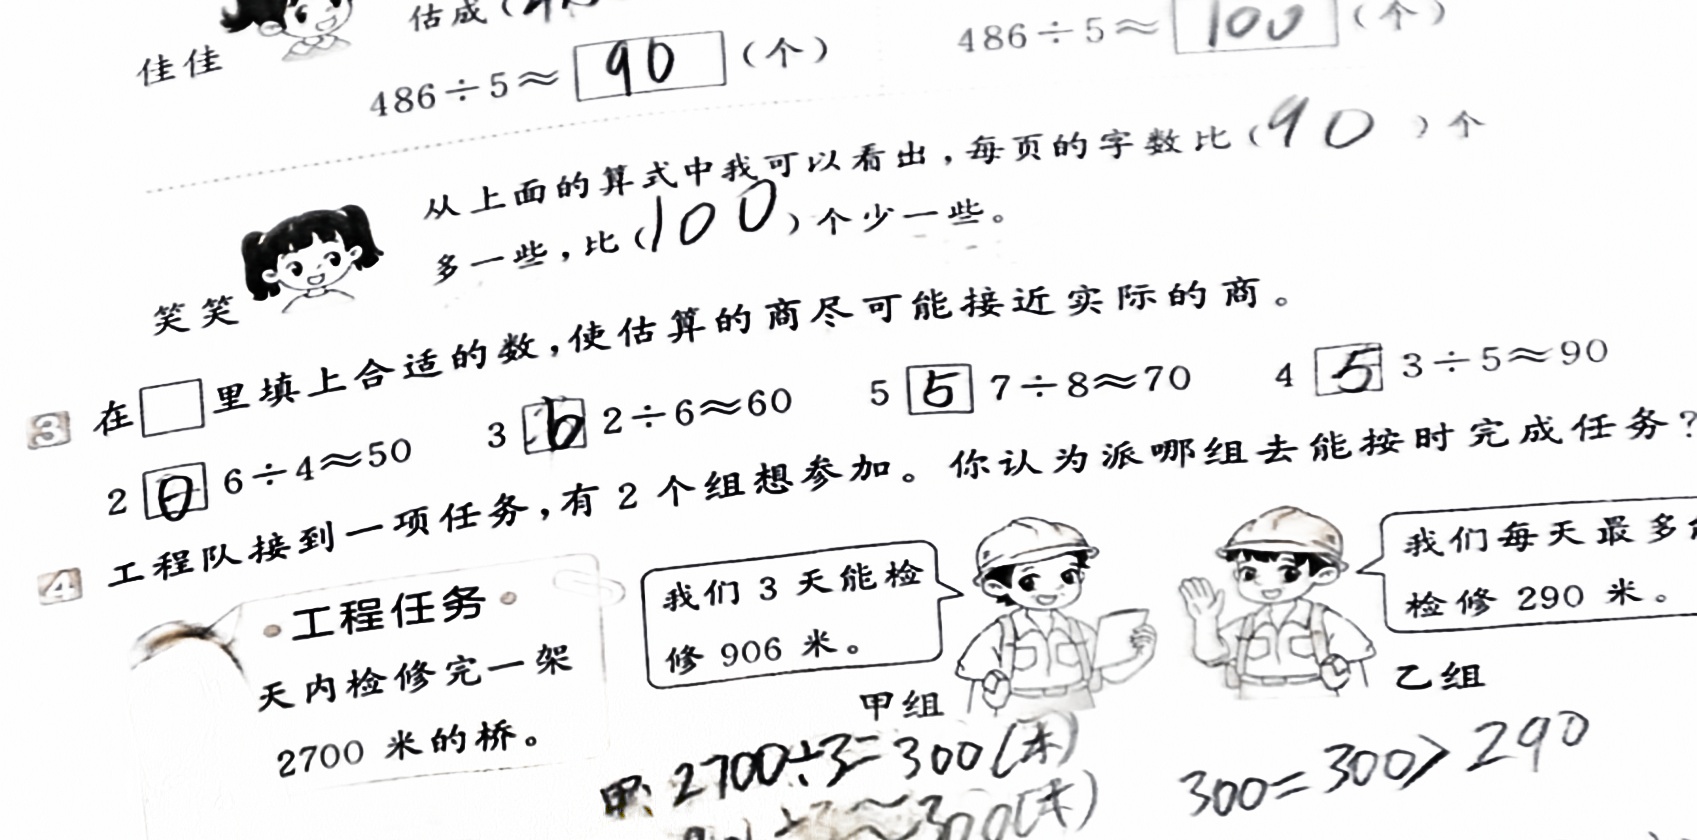 佳佳
估成(
486÷5≈ 90 (个)
486÷5≈ 100 (个)
从上面的算式中我可以看出,每页的字数比(90)个
多一些,比(100)个少一些。
笑笑
3 在□里填上合适的数,使估算的商尽可能接近实际的商。
2 0 6÷4≈50 3 6 2÷6≈60 5 5 7÷8≈70 4 5 3÷5≈90
4 工程队接到一项任务,有2个组想参加。你认为派哪组去能按时完成任务?
·工程任务·
天内检修完一架
2700米的桥。
我们3天能检
修906米。
甲组
我们每天最多
检修290米。
乙组
甲:2700÷3=300(米)
≈300(米)
300=300>290